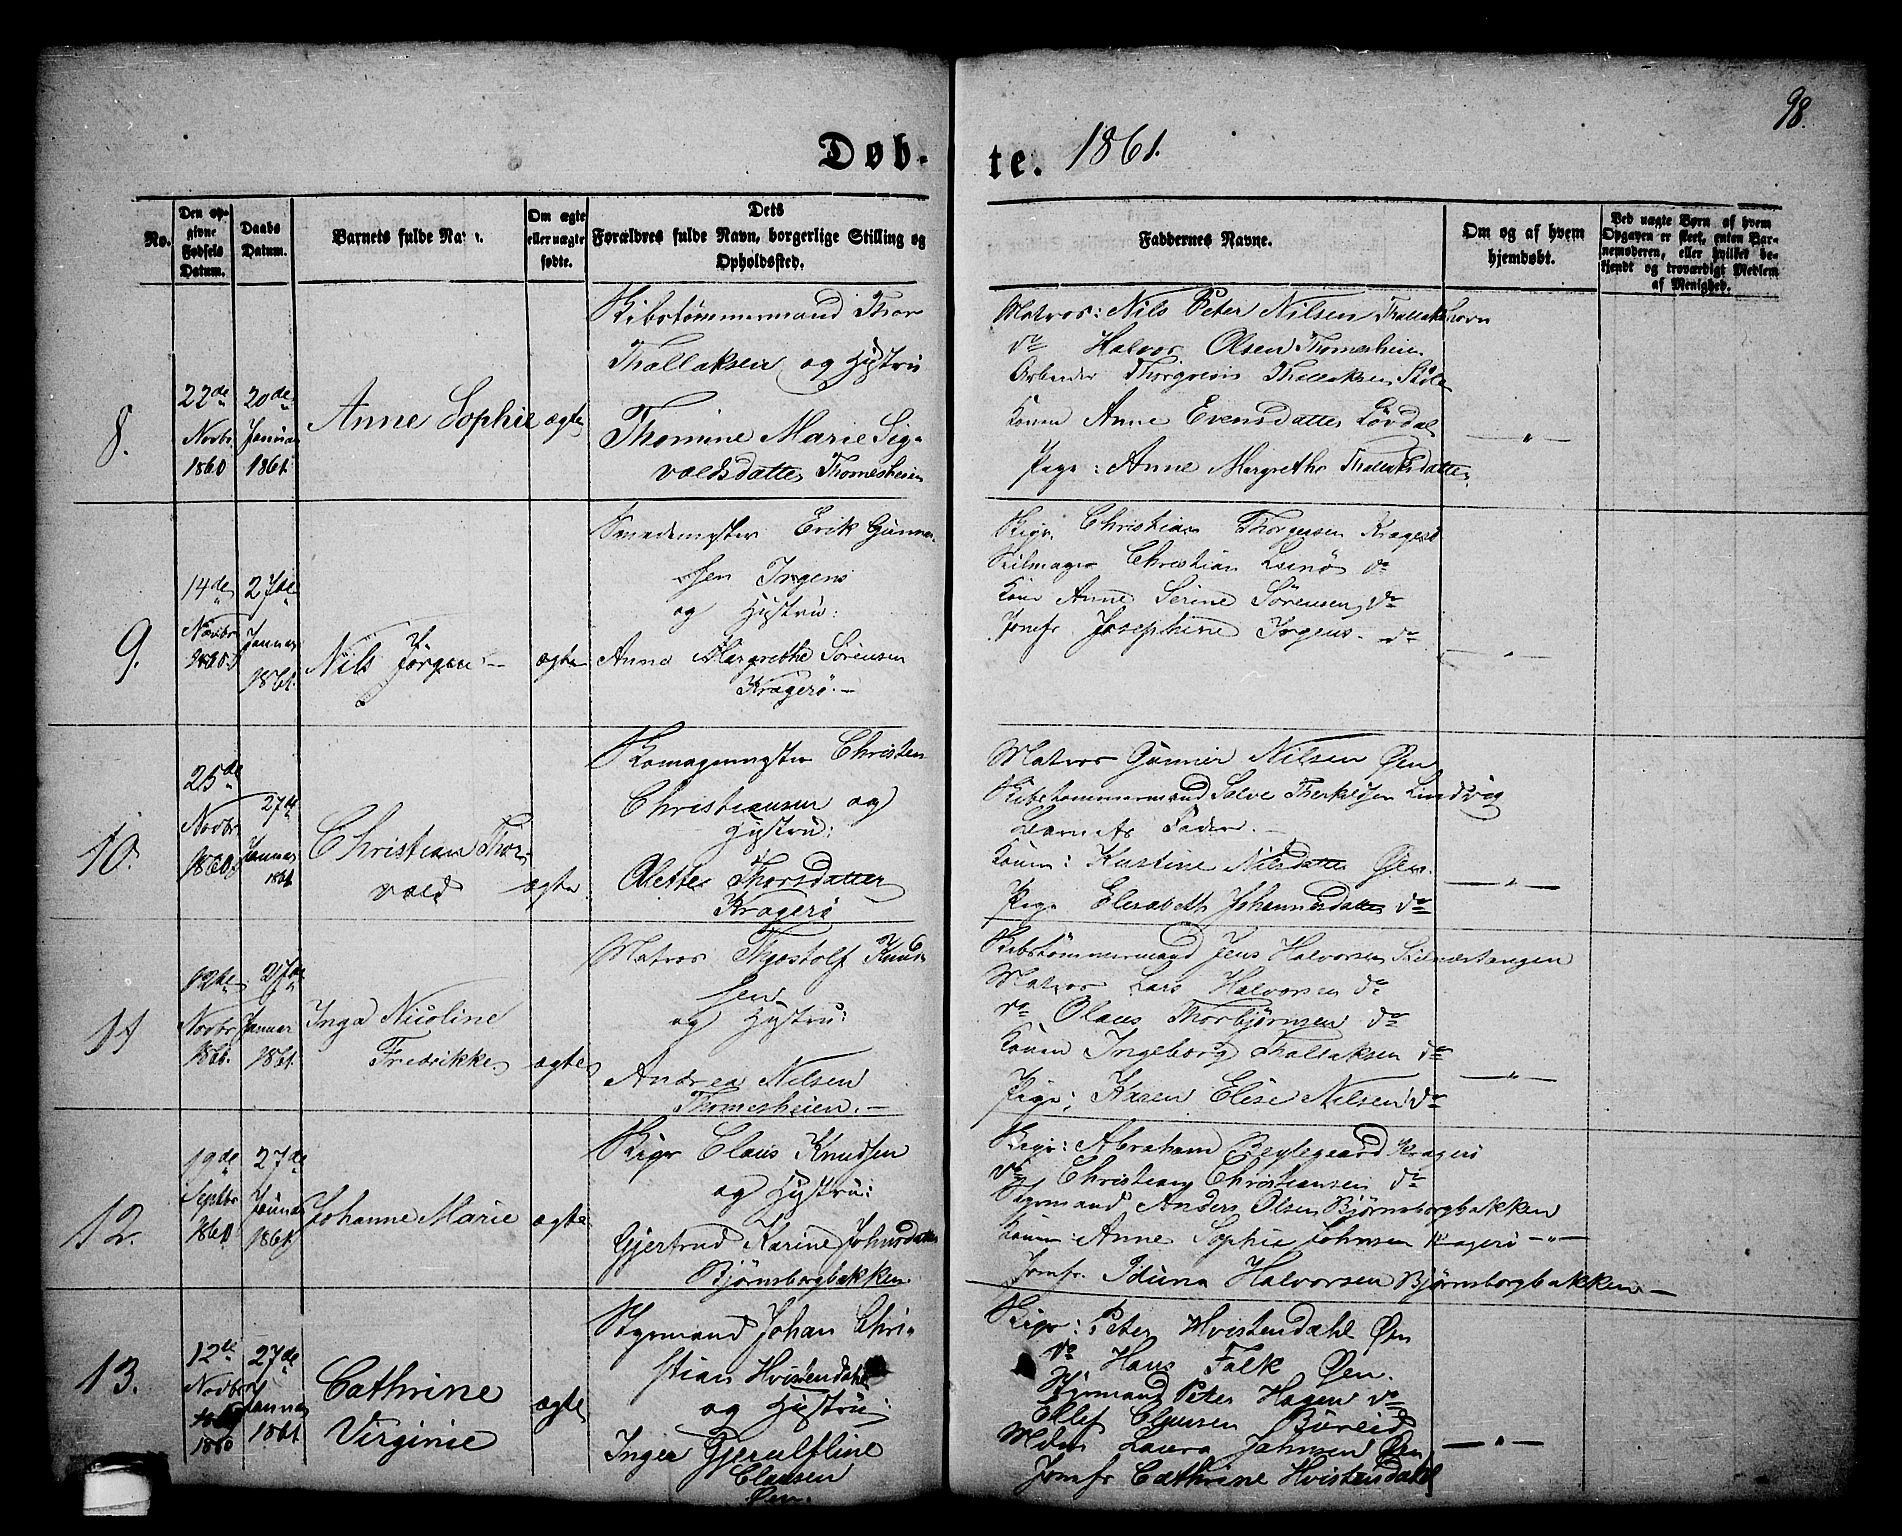 98.
Døb-te. 1861.
No.
Den op-
givne
Fødsels
Datum.
Daabs
Datum.
Barnets fulde Navn.
Om ægte
eller uægte
fødte.
Dets
Forældres fulde Navn, borgerlige Stilling og
Opholdssted.
Faddernes Navne.
Om og af hvem
hjemdøbt.
Ved uægte Børn af hvem
Opgaven er skeet, enten Bar-
nemoderen, eller hvilket be-
kjendt og troværdigt Medlem
af Menighed.
8.
22de
Novbr
1860
20de
Januar
1861.
Anne Sophie
ægte
Skibstømmermand Thor
Thollaksen og Hustru
Thomine Marie Sig-
valdsdatter Thomesheien
Matros: Nils Peter Nilsen
do Halvor Olsen Thomesheien
Arbeider Thollaksen
Konen Anne Evensdatter Løvdal
Pige: Anne Margrethe Thollaksdatter
— " —
9.
14de
Novbr
1860
27de
Januar
1861.
Nils Jörgen —
ægte
Smedemester Erik Gunner-
sen Irgens
og Hustru:
Anne Margrethe Sørensen
Kragerö. —
Christian Thorgersen Kragerö
Christian do
Kone Anne Serine Sörensen do
Jomfr. Josephine Irgens. do
— " —
10.
25de
Novbr
1860
27de
Januar
1861
Christian Thor-
vald
ægte
Christen
Christiansen og
Hustru:
Alette Thorsdatter
Kragerö
Matros Gunner Nilsen Øen
Skibstømmermand Salve Therkelsen Lindvig
Barnets Fader. —
Konen: Kirstine Nilsdatter Øen.
Pige Elisabeth Johannesdatter do
— " —
11
12te
Novbr
1860.
27de
Januar
1861.
Inga Nicoline
Fredrikke
ægte
Matros Thjostolf Knud-
sen
og Hustru:
Andrea Nilsen
Thomesheien. —
Skibstømmermand Jens Halvorsen
Matros Lars Halvorsen do
do Olaus Thorbjörnsen do
Konen Ingeborg Thollaksen do
Pige: Karen Elise Nilsen do
— " —
12.
19de
Septbr
1860.
27de
Januar
1861
Johanne Marie
ægte
Claus Knudsen
og Hustru:
Gjertrud Karine Johnsdatter
Björnsborgbakken
Abraham Beylegaard Kragerö
do Christian Christiansen do
Styrmand Anders Olsen Björnsborgbakken
Konen: Anne Sophie Johnsen Kragerö
— " —
Jomfr. Iduna Halvorsen Björnsborgbakken —
13.
12te
Novbr
1860
27de
Januar
1861.
Cathrine
Virginie
ægte
Styrmand Johan Chri-
stian Hvistendahl
og Hustru:
Inger Gjerulfline
Clausen
Øen.
Peter Hvistendahl Øen
do Hans Falk Øen.
Styrmand Peter Hagen do
Ellef Clausen Bureid
Laura Johnsen Øen
Jomfr Cathrine Hvistendahl
— " —